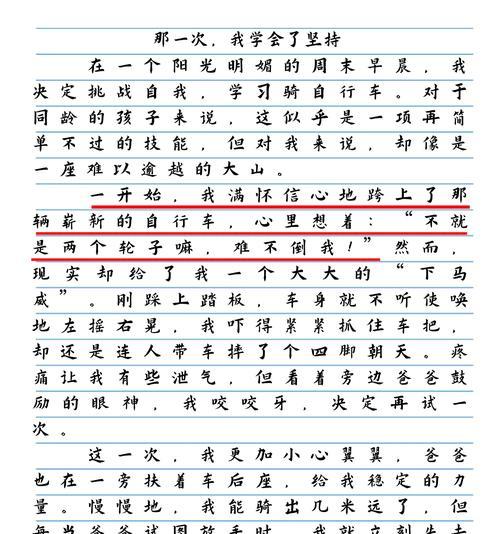 那一次，我学会了坚持
在一个阳光明媚的周末早晨，我
决定挑战自我，学习骑自行车。对于
同龄的孩子来说，这似乎是一项再简
单不过的技能，但对我来说，却像是
一座难以逾越的大山。
一开始，我满怀信心地跨上了那
辆崭新的自行车，心里想着：“不就
是两个轮子嘛，难不倒我！”然而，
现实却给了我一个大大的“下马
威”。刚踩上踏板，车身就不听使唤
地左摇右晃，我吓得紧紧抓住车把，
却还是连人带车摔了个四脚朝天。疼
痛让我有些泄气，但看着旁边爸爸鼓
励的眼神，我咬咬牙，决定再试一
次。
这一次，我更加小心翼翼，爸爸
也在一旁扶着车后座，给我稳定的力
量。慢慢地，我能骑出几米远了，但
每当爸爸试图放手时，我就立刻失去